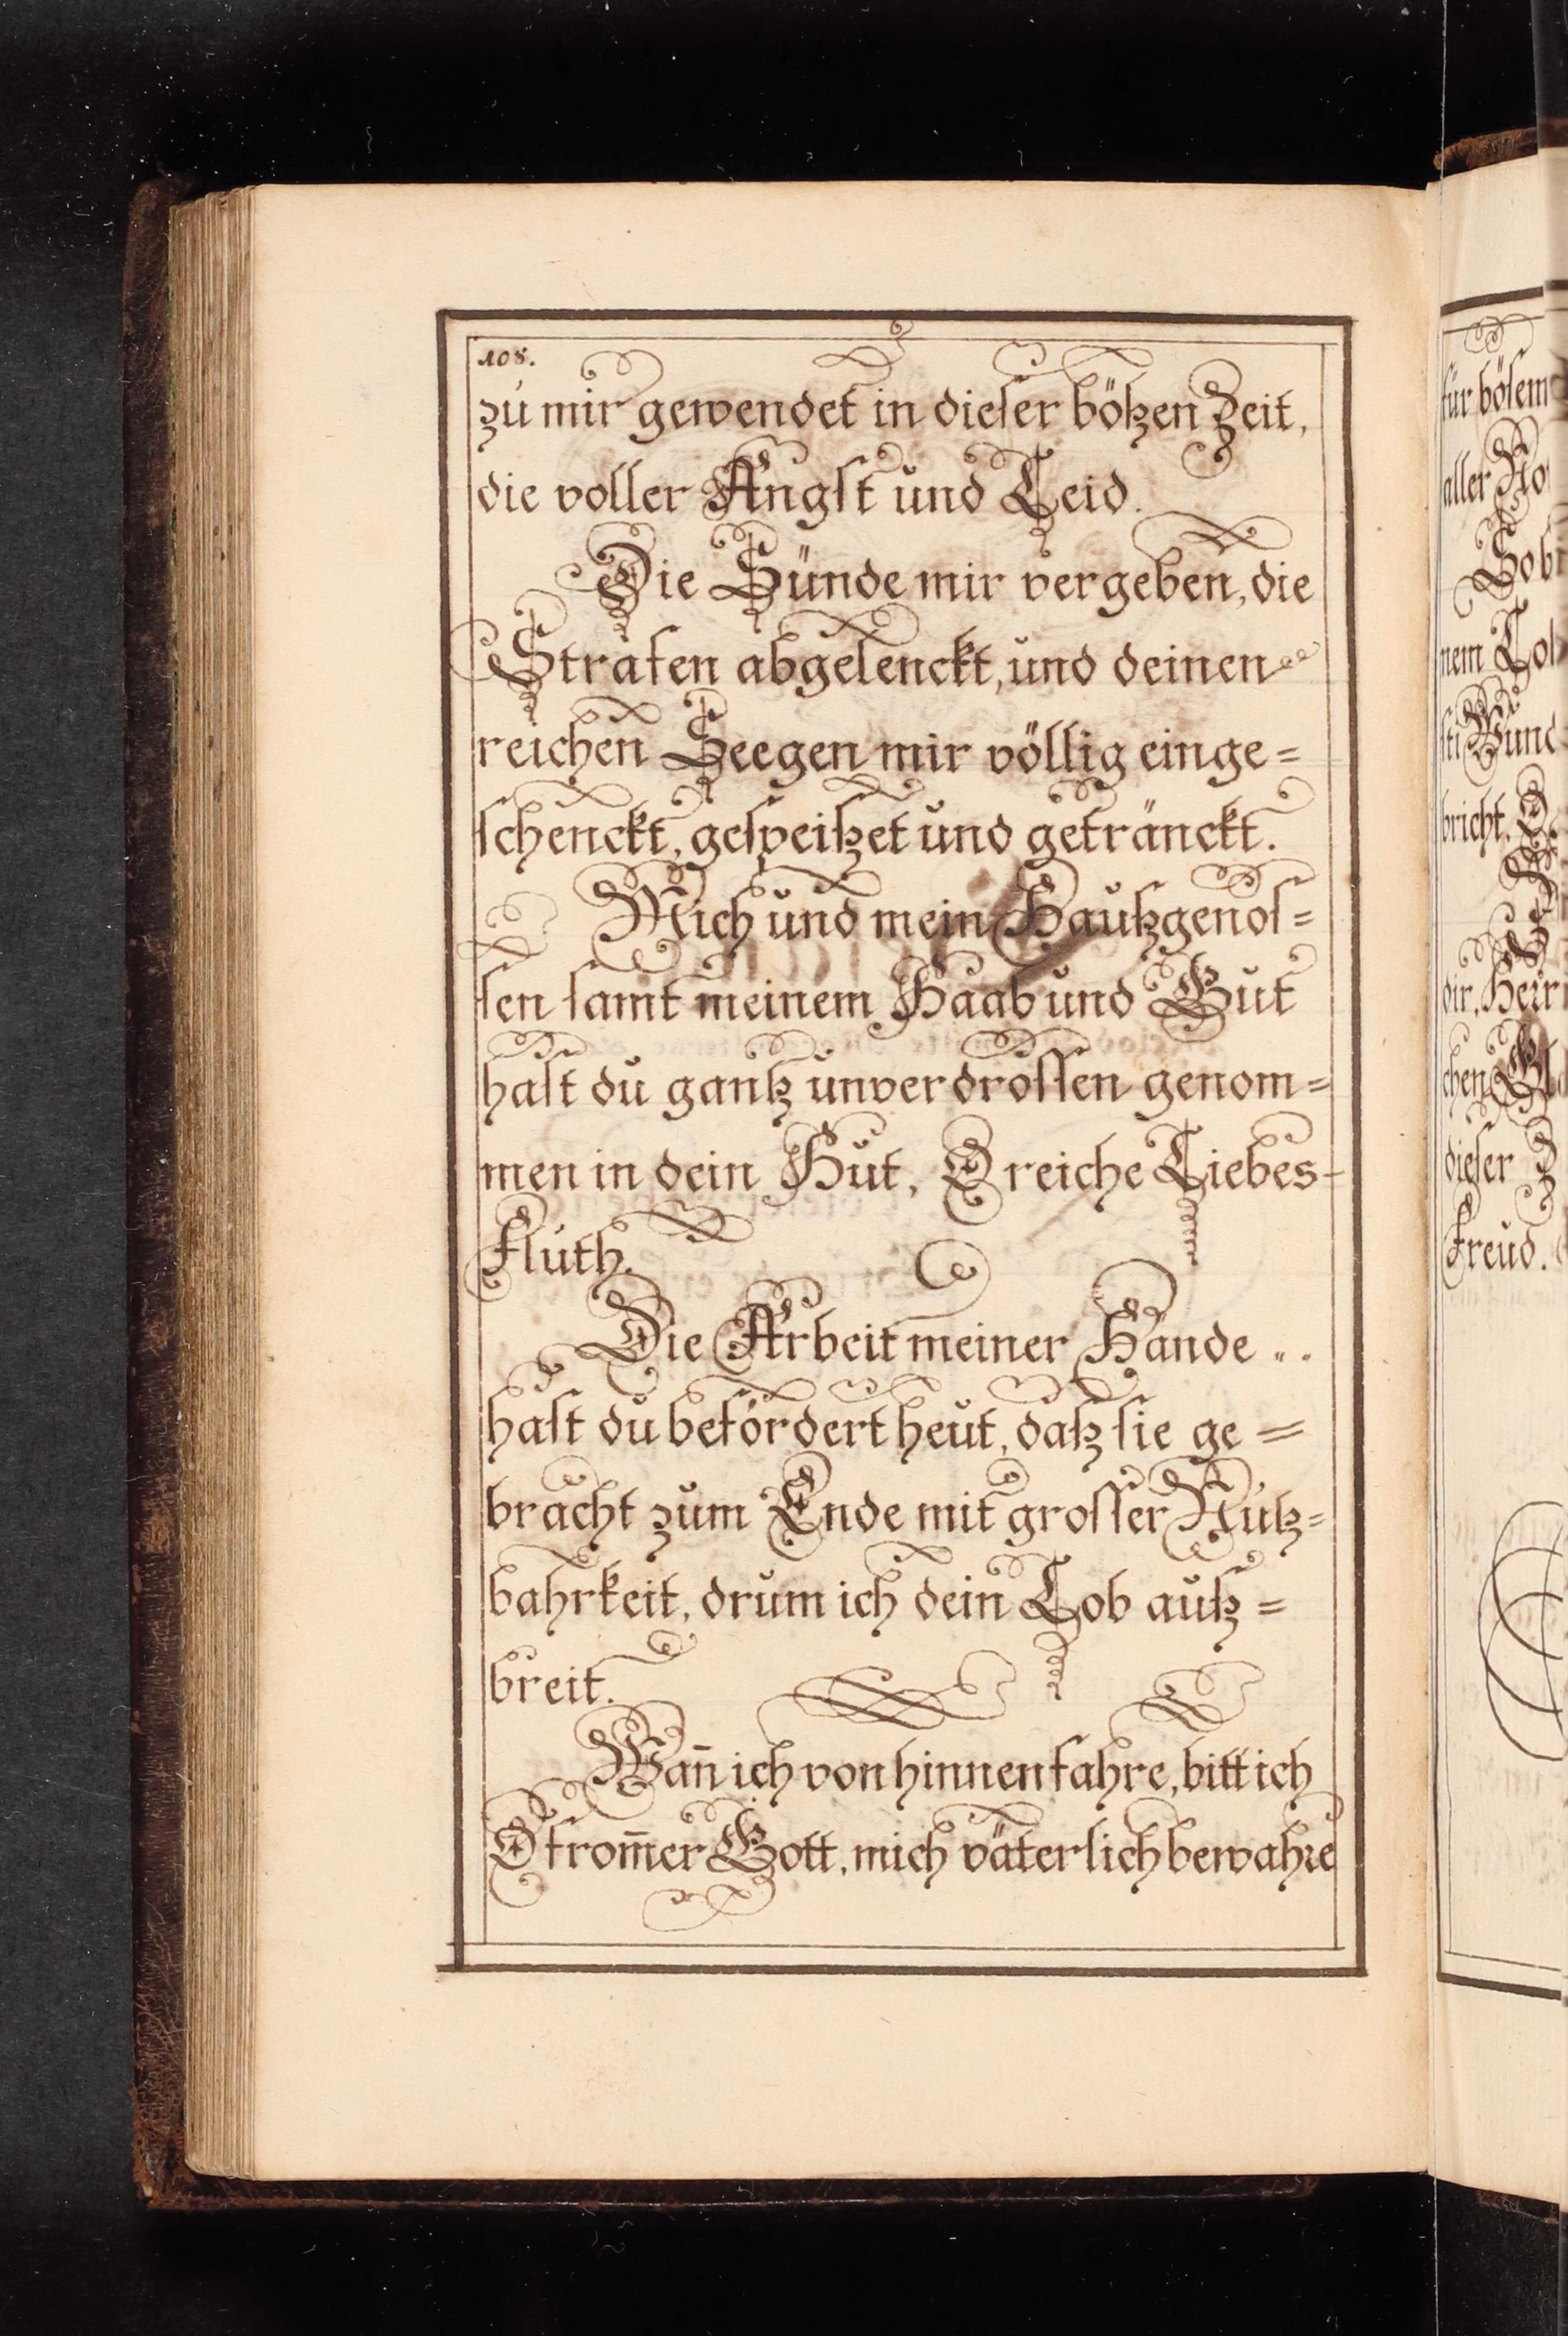 108.
zu mir gewendet in dieser bößen Zeit,
die voller Angst und Leid.
Die Sünde mir vergeben, die
Strafen abgelenckt, und deinen
reichen Seegen mir völlig einge=
schenckt, gespeißet und getränckt.
Mich und mein Haußgenos=
sen samt meinem Haab und Gut
hast du gantz unverdrossen genom=
men in dein Hut, O reiche Liebes-
Fluth.
Die Arbeit meiner Hände ..
hast du befördert heut, daß sie ge=
bracht zum Ende mit grosser Nutz=
bahrkeit, drum ich dein Lob auß=
breit.
Wan̄ ich von hinnen fahre, bitt ich
O from̄er Gott, mich väterlich bewahre
für bösem
aller
nem
bricht,
dir, Herr
chen
dieser
Freud.